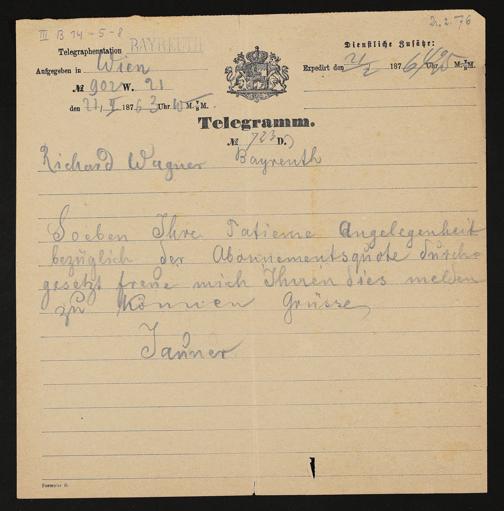 III B 14-5-8
21.2.76
Telegraphenstation BAYREUTH
Dienstliche Zusätze:
Aufgegeben in Wien
Expedirt den 21/2 1876 Uhr M.
№ 902 W. 21
den 21/II 1876 3 Uhr M. M.
Telegramm.
№ 723 D.
Richard Wagner Bayreuth
Soeben Ihre Tatieme Angelegenheit
bezüglich der Abonnementsquote durch-
gesetzt freue mich Ihnen dies melden
zu können Grüsse
Jauner
Formular